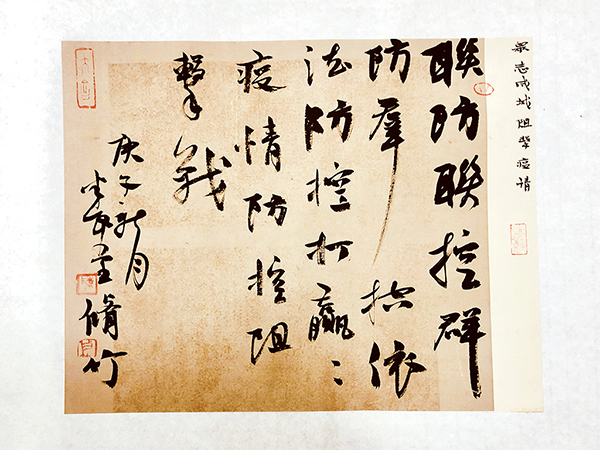 衆志成城阻擊疫情
聯防聯控群
防羣控依
法防控打贏〻
疫情防控阻
擊戰
庚子月
脩竹